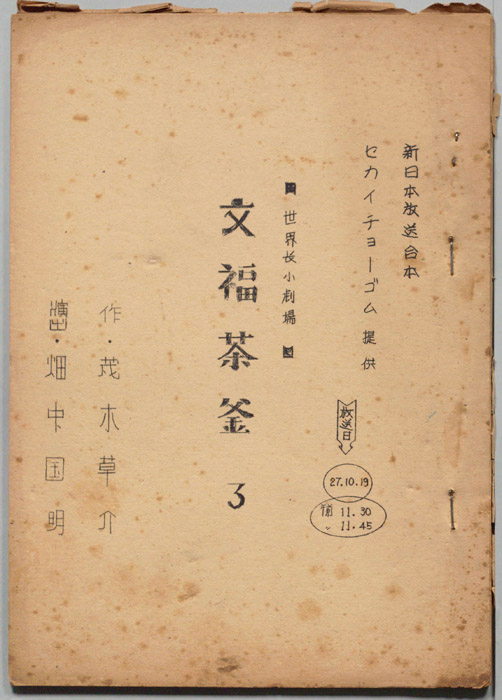 新日本放送台本
セカイチョーゴム提供
放送日
27.10.19
前 11.30
〃 11.45
世界長小劇場
文福茶釜 3
作・茂木草介
演出・畑中国明